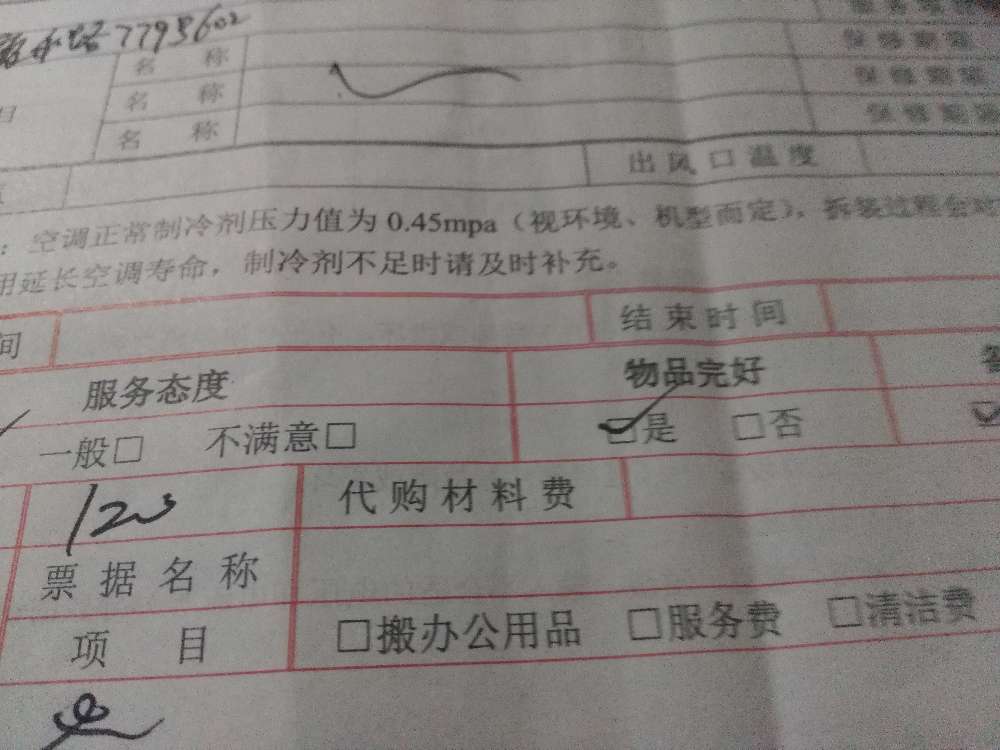 7795602
名 称
名 称
名 称
保修期限
保修期限
出风口温度
：空调正常制冷剂压力值为 0.45mpa（视环境、机型而定），拆装过程会对
用延长空调寿命，制冷剂不足时请及时补充。
间 结束时间
服务态度 物品完好
一般□ 不满意□ □是 □否
代购材料费
票据名称
项 目 □搬办公用品 □服务费 □清洁费